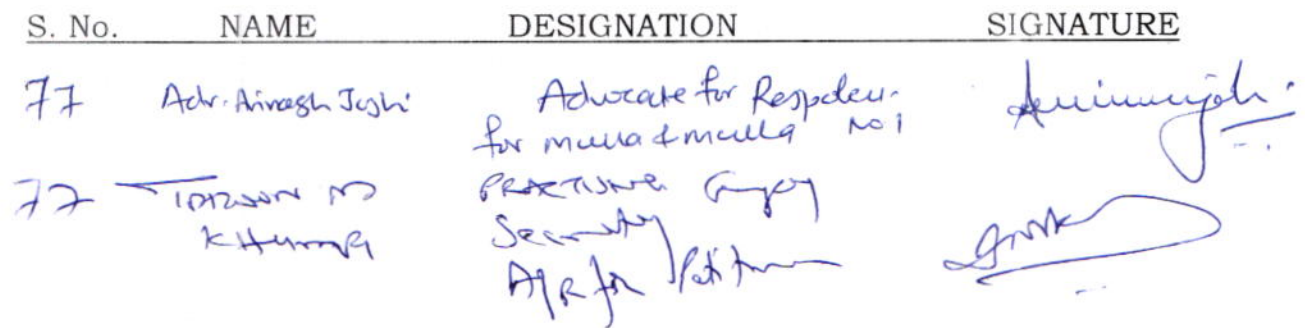 S. No. NAME DESIGNATION SIGNATURE
77 Adv. Avinash Joshi Advocate for Responden.
for Mulla & Mulla No 1
77 PRACTISING Company
KHURANA Secretary
A/R for Petitioner